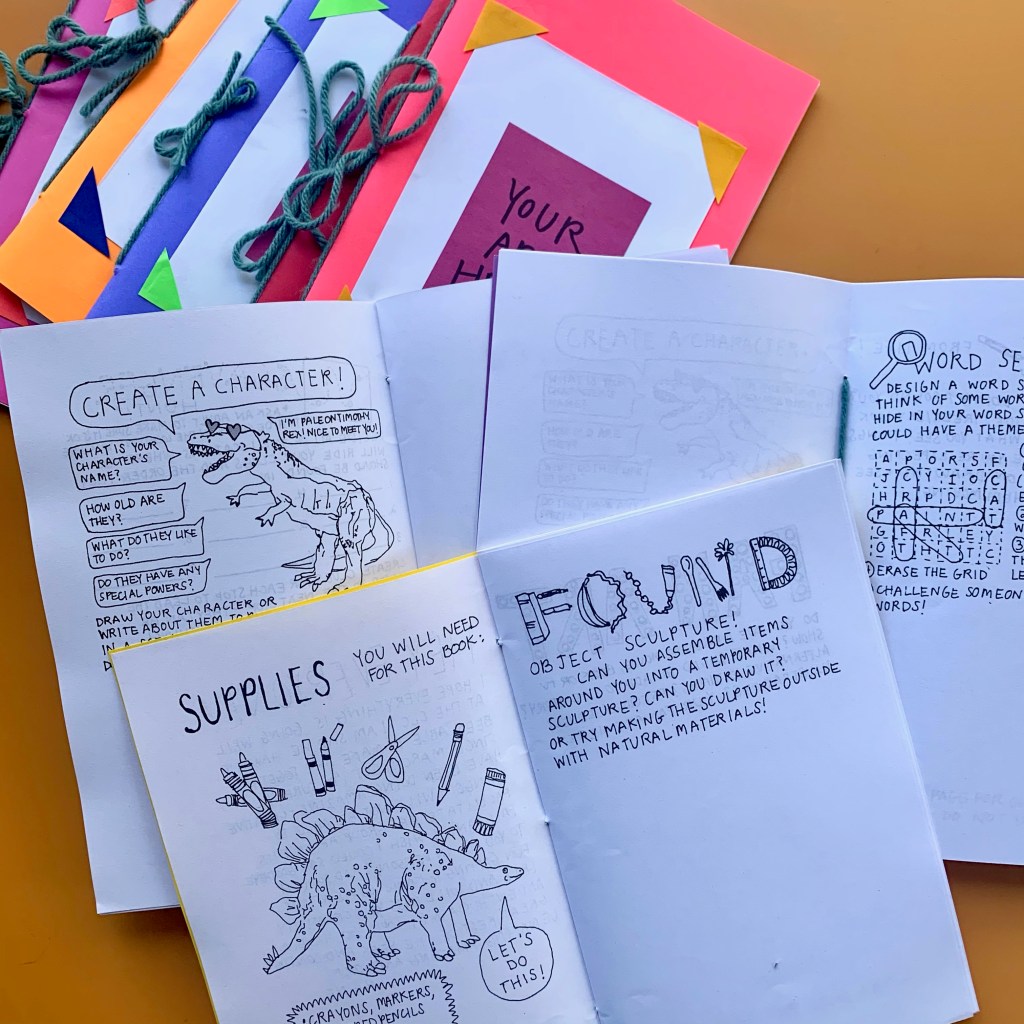 YOUR
CREATE A CHARACTER!
I'M PALEONTIMOTHY
REX! NICE TO MEET YOU!
WHAT IS YOUR
CHARACTER'S
NAME?
HOW OLD ARE
THEY?
WHAT DO THEY LIKE
TO DO?
DO THEY HAVE ANY
SPECIAL POWERS?
DRAW YOUR CHARACTER OR
WRITE ABOUT THEM TO
WORD SE
DESIGN A WORD S
THINK OF SOME WOR
HIDE IN YOUR WORD S
COULD HAVE A THEME
A P O R T S F
J C Y I O C
H R P D C A
P A I N T
G F R E Y
O T H T C
ERASE THE GRID
CHALLENGE SOMEON
WORDS!
SUPPLIES
YOU WILL NEED
FOR THIS BOOK:
LET'S
DO
THIS!
CRAYONS, MARKERS,
PENCILS
FOUND
OBJECT SCULPTURE!
CAN YOU ASSEMBLE ITEMS
AROUND YOU INTO A TEMPORARY
SCULPTURE? CAN YOU DRAW IT?
OR TRY MAKING THE SCULPTURE OUTSIDE
WITH NATURAL MATERIALS!